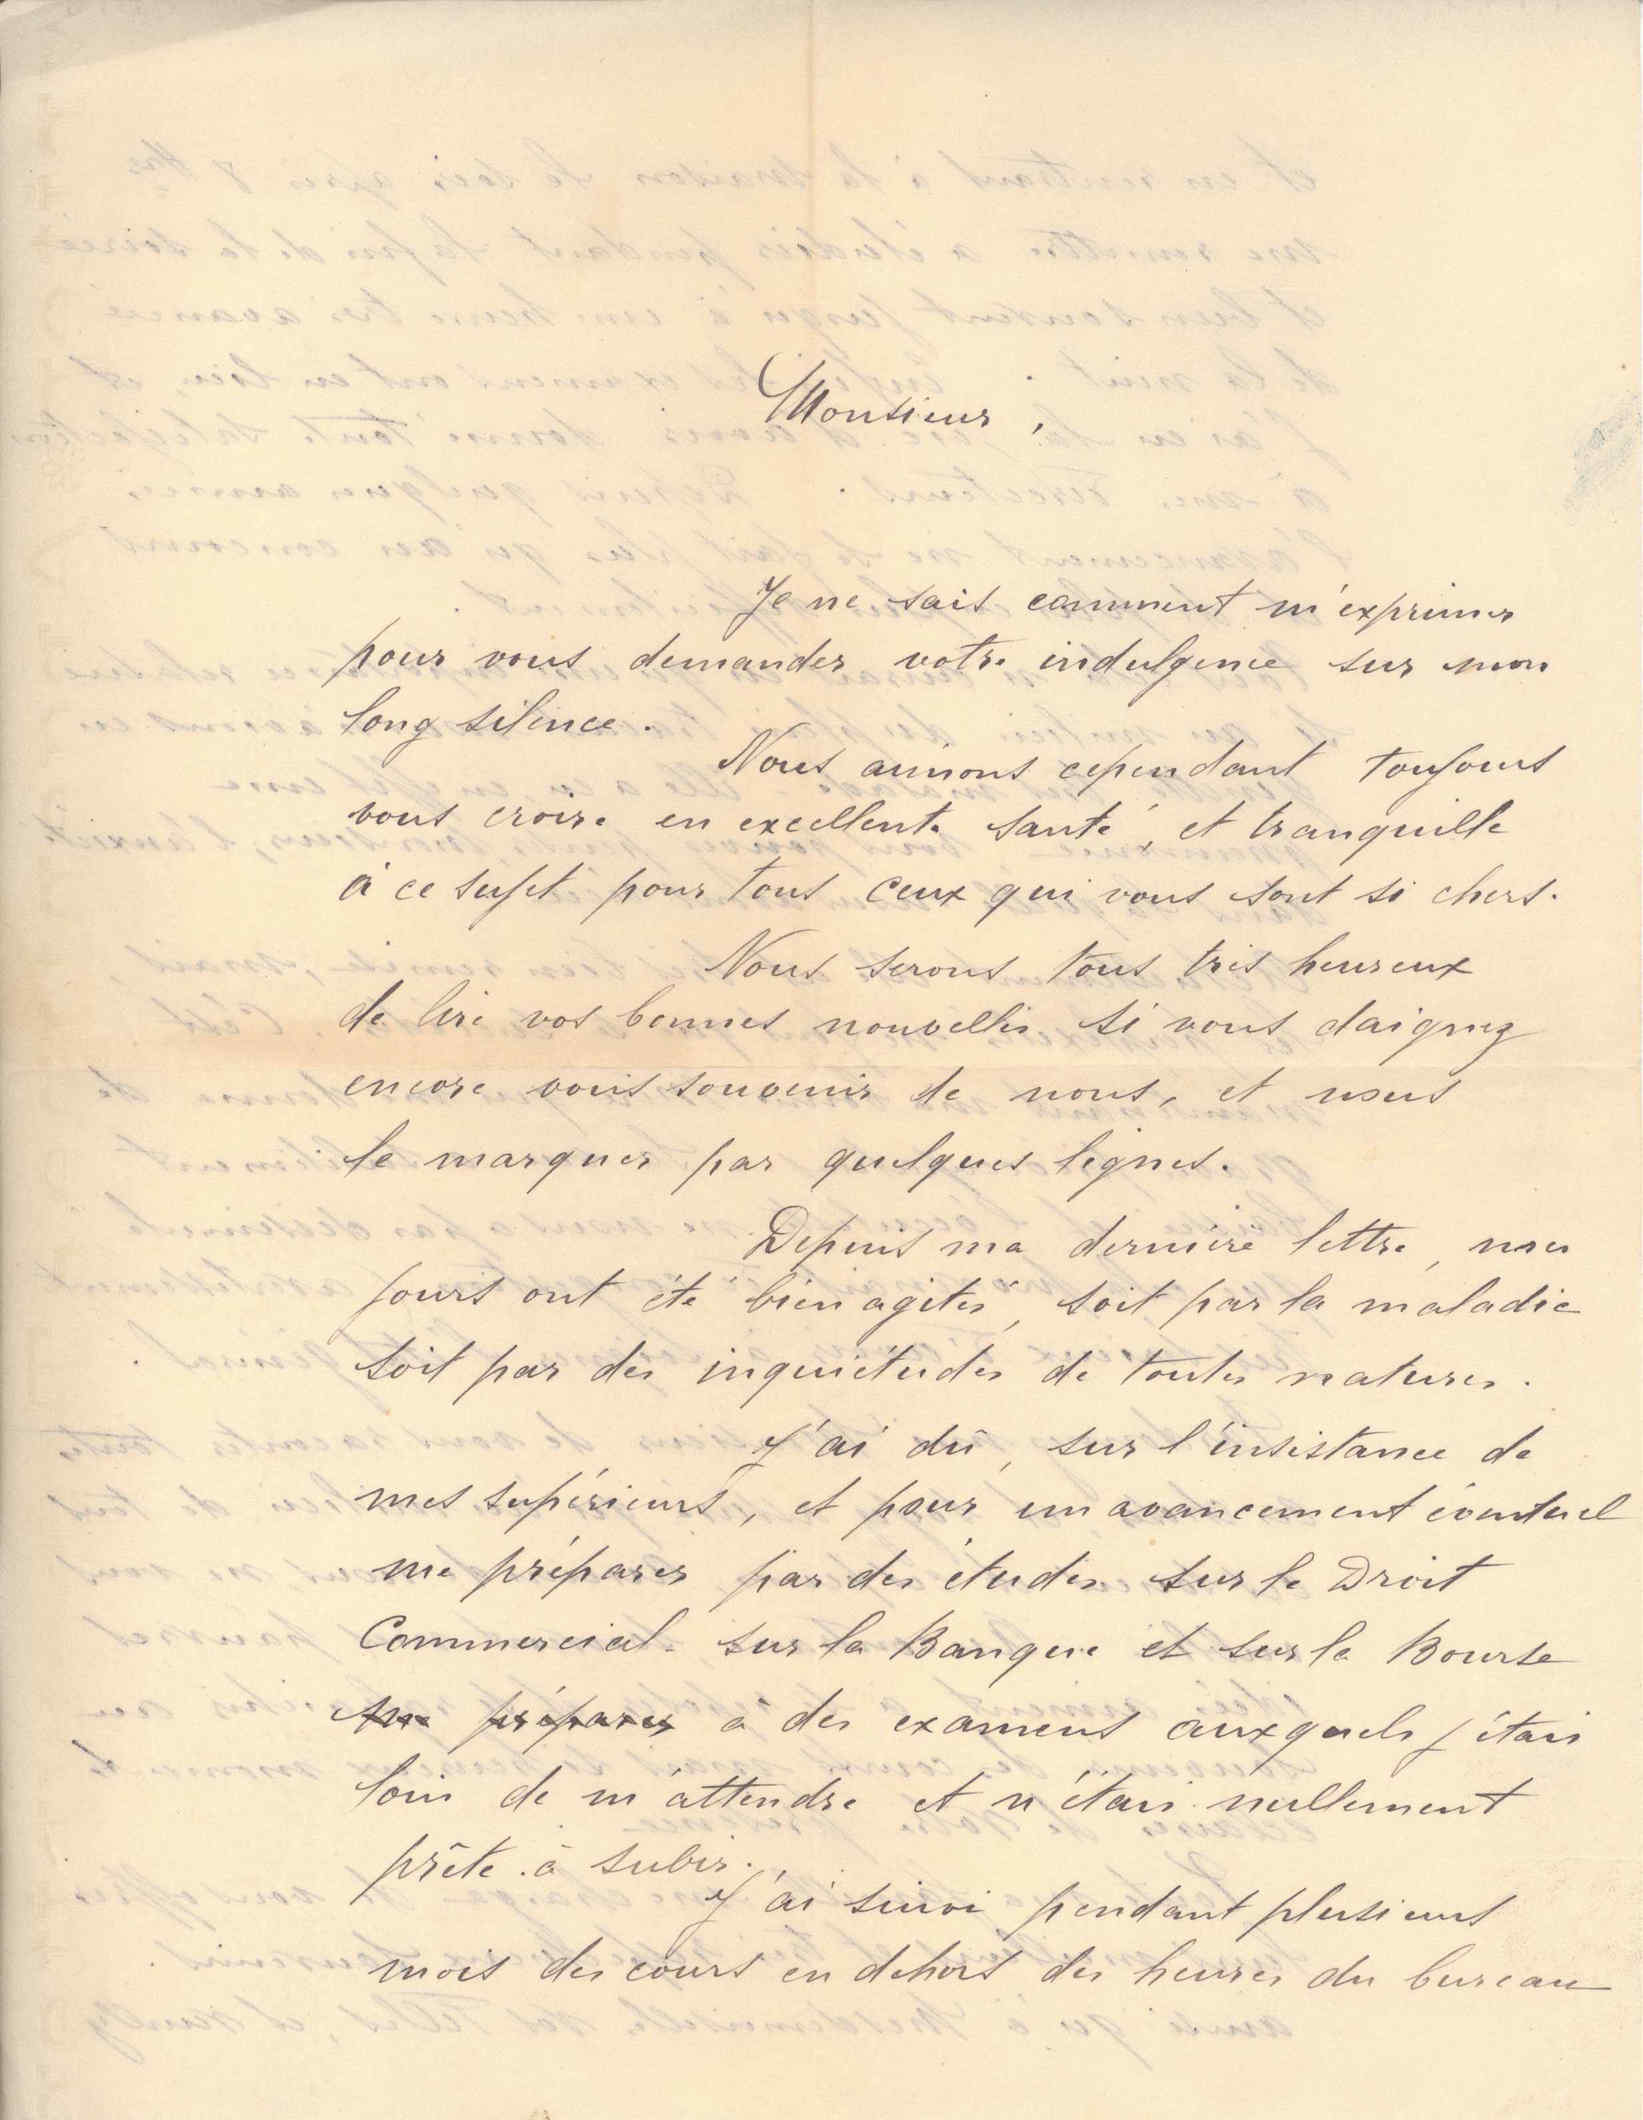 Monsieur,
Je ne sais comment m'exprimer
pour vous demander votre indulgence sur mon
long silence.
Nous aimons cependant toujours
vous croire en excellente santé, et tranquille
à ce sujet pour tous ceux qui vous sont si chers.
Nous serons tous très heureux
de lire vos bonnes nouvelles si vous daignez
encore vous souvenir de nous, et nous
le marquer par quelques lignes.
Depuis ma dernière lettre, mes
jours ont été bien agités, soit par la maladie
soit par des inquiétudes de toutes natures.
J'ai dû, sur l'insistance de
mes supérieurs, et pour un avancement éventuel
me préparer par des études sur le Droit
Commercial. sur la Banque et sur la Bourse
me préparer à des examens auxquels j'étais
loin de m'attendre et n'étais nullement
prête à subir.
J'ai suivi pendant plusieurs
mois des cours en dehors des heures du bureau